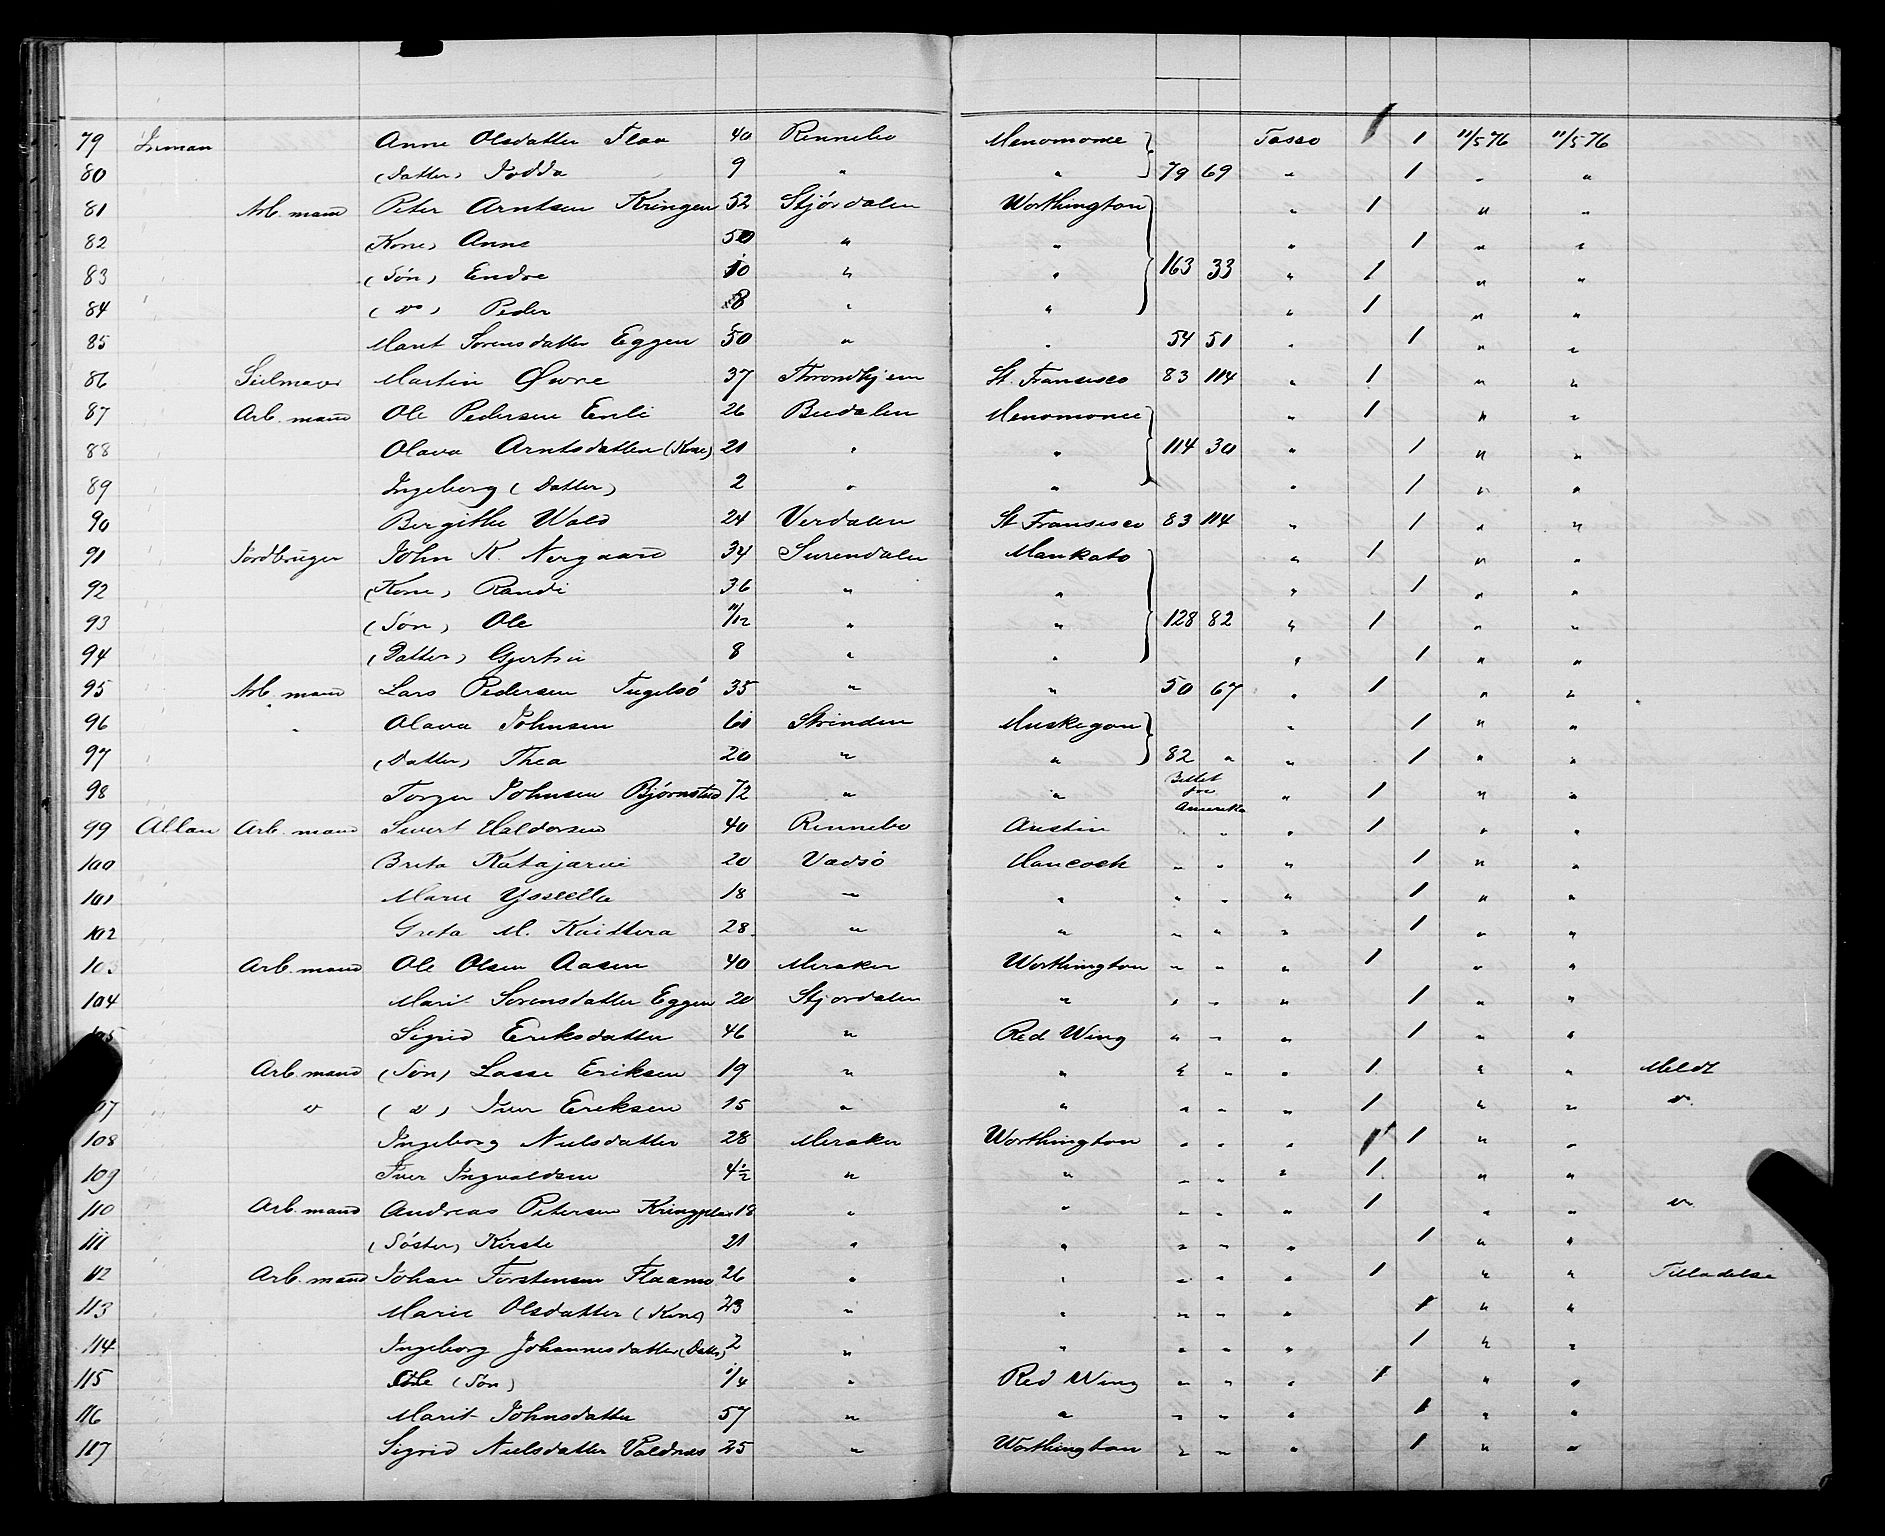 79 Inman Anne Olsdatter Flaa 40 Rennebo Menomonee Tasso 1 1 11/5 76 11/5 76
80 (Datter) Jodda 9 " " 79 69 " 1 " "
81 Arb. mand Peter Arntsen Kringen 52 Stjördalen Worthington " 1 " "
82 (Kone) Anne 50 " " " 1 " "
83 (Søn) Endre 10 " " 163 33 " 1 " "
84 (do) Peder 8 " " " 1 " "
85 Marit Sorensdatter Eggen 50 " " 54 51 " 1 " "
86 Martin Øvre 37 Throndhjem St. Fransisco 83 114 " 1 " "
87 Arb. mand Ole Pedersen Enli 26 Budalen Menomonee " 1 " "
88 Olava Arntsdatter (Kone) 21 " " 114 30 " 1 " "
89 Ingeborg (Datter) 2 " " " 1 " "
90 Bergithe Wold 24 Verdalen St Fransisco 83 114 " 1 " "
91 Jordbruger John K. Nergaard 34 Surendalen Mankato " 1 " "
92 (Kone) Randi 36 " " " 1 " "
93 (Søn) Ole 11/12 " " 128 82 " 1 " "
94 (Datter) Gjertru 8 " " " 1 " "
95 Arb. mand Lars Pedersen Fugelsö 35 " " 50 67 " 1 " "
96 " Olava Johnsen 61 Strinden Muskegon " 1 " "
97 (Datter) Thea 20 " " 82 " " 1 " "
98 Torger Johnsen Bjørnstad 72 " " Billet fra Amerika " 1 " "
99 Allan Arb. mand Sivert Haldorsen 40 Rennebo Austin " " " 1 " "
100 Brita Katajarvi 20 Vadsö Hancock " " " 1 " "
101 Marie 18 " " " " " 1 " "
102 Greta M. Kaittera 28 " " " " " 1 " "
103 Arb. mand Ole Olsen Aasen 40 Meraker Worthington " " " 1 " "
104 Marit Sorensdatter Eggen 20 Stjordalen " " " " 1 " "
105 Sigrid Eriksdatter 46 " Red Wing " " " 1 " "
Arb. mand (Søn) Lasse Eriksen 19 " " " " " 1 " " Meldt
107 do (do) Iver Eriksen 15 " " " " " 1 " " do
108 Ingeborg Nielsdatter 28 Meraker Worthington " " " 1 1 " "
109 Iver Ingvaldsen 4 1/2 " " " " " 1 " "
110 Arb. mand Andreas Petersen 18 " " " " " 1 " " do
111 (Söster) Kirste 21 " " " " " 1 " "
112 Arb. mand Johan Torstensen Flaamo 26 " " " " " 1 " " Tilladelse
113 Marie Olsdatter (Kone) 23 " " " " " 1 " "
114 Ingeborg Johannesdatter (Datter) 2 " " " " " 1 " "
115 Ole (Søn) 1/4 " Red Wing " " " 1 " "
116 Marit Johnsdatter 57 " " " " " 1 " "
117 Sigrid Nielsdatter 25 " Worthington " " " 1 " "